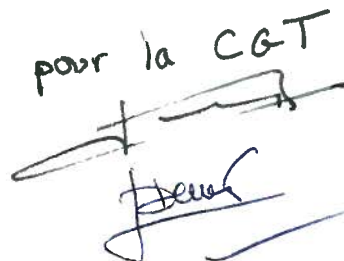 pour la CGT